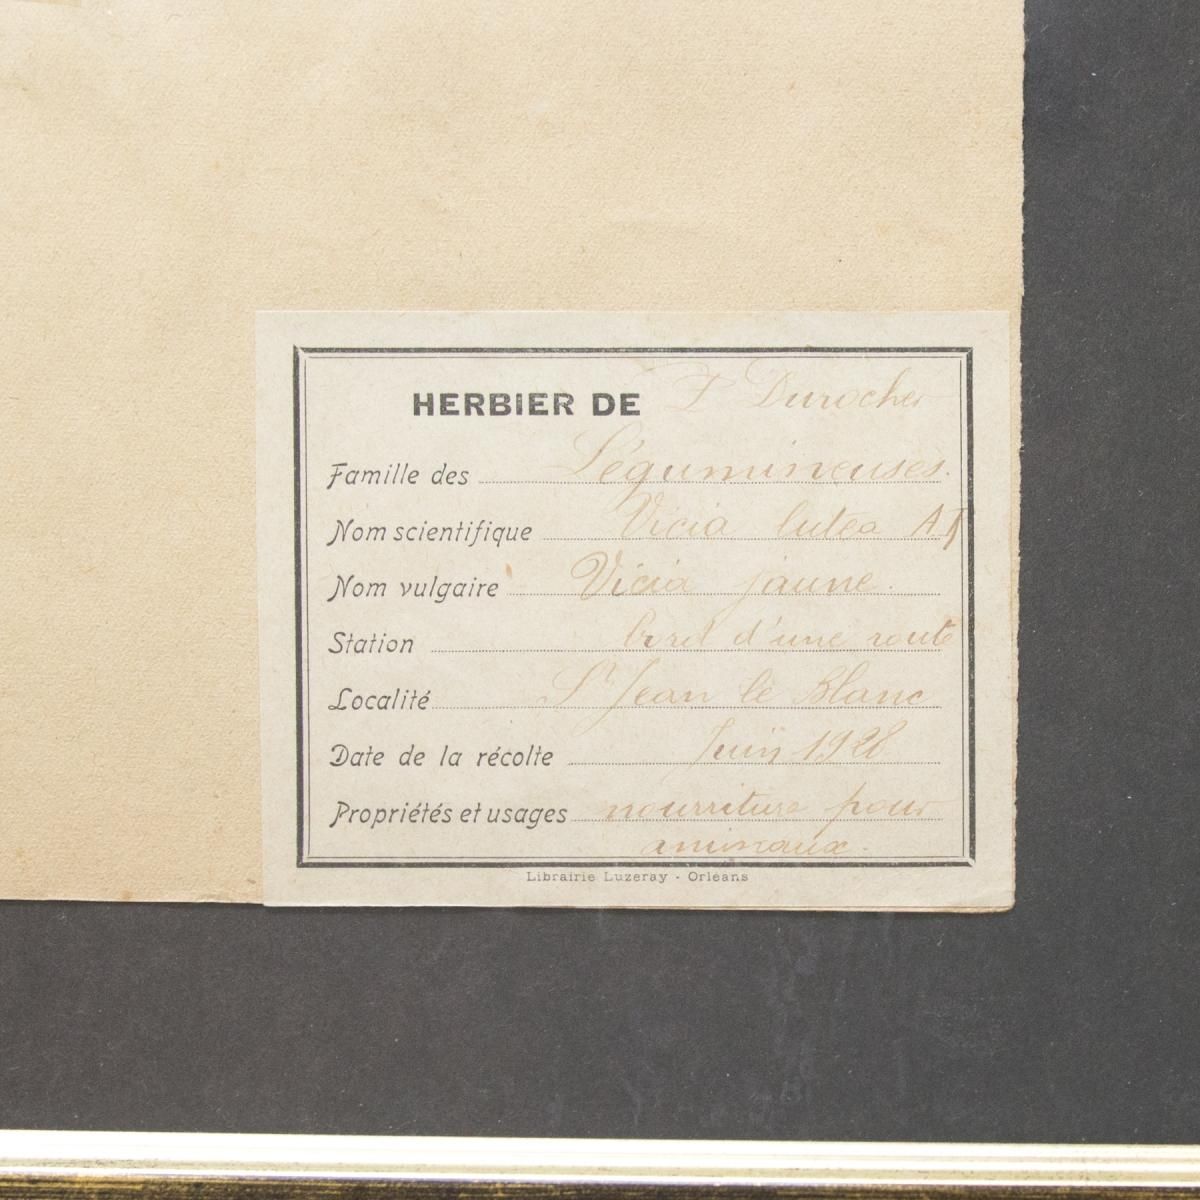 HERBIER DE P Durocher
Famille des Légumineuses.
Nom scientifique Vicia lutea
Nom vulgaire Vicia jaune.
Station bord d'une route
Localité St Jean le Blanc
Date de la récolte Juin 1928
Propriétés et usages nourriture pour
animaux.
Librairie Luzeray - Orléans